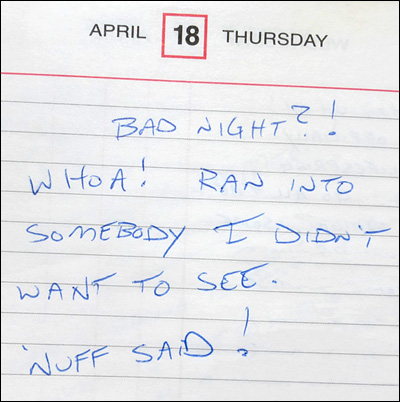 APRIL 18 THURSDAY
BAD NIGHT?!
WHOA! RAN INTO
SOMEBODY I DIDN'T
WANT TO SEE.
'NUFF SAID!